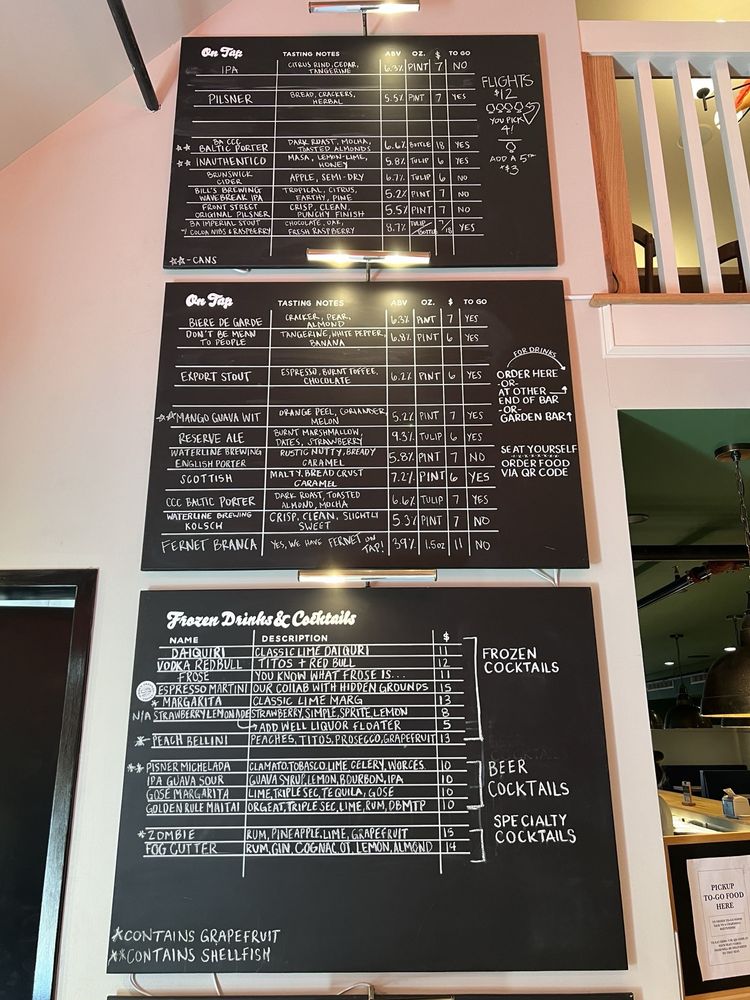 On Tap TASTING NOTES ABV OZ. $ TO GO
IPA CITRUS RIND, CEDAR, TANGERINE 6.3% PINT 7 NO
PILSNER BREAD, CRACKERS, HERBAL 5.5% PINT 7 YES
☆☆ BA CCC BALTIC PORTER DARK ROAST, MOCHA, TOASTED ALMONDS 6.6% BOTTLE 18 YES
☆☆ INAUTHENTICO MASA, LEMON-LIME, HONEY 5.8% TULIP 6 YES
BRUNSWICK CIDER APPLE, SEMI-DRY 6.7% TULIP 6 NO
BILL'S BREWING WAVE BREAK IPA TROPICAL, CITRUS, EARTHY, PINE 5.2% PINT 7 NO
FRONT STREET ORIGINAL PILSNER CRISP, CLEAN, PUNCHY FINISH 5.5% PINT 7 NO
BA IMPERIAL STOUT W/ COCOA NIBS & RASPBERRY CHOCOLATE, OAK, FRESH RASPBERRY 8.7% TULIP/BOTTLE 7/18 YES
☆☆-CANS
FLIGHTS
$12
YOU PICK
4!
ADD A 5TH
+$3
On Tap TASTING NOTES ABV OZ. $ TO GO
BIERE DE GARDE CRACKER, PEAR, ALMOND 6.3% PINT 7 YES
DON'T BE MEAN TO PEOPLE TANGERINE, WHITE PEPPER, BANANA 6.8% PINT 6 YES
EXPORT STOUT ESPRESSO, BURNT TOFFEE, CHOCOLATE 6.2% PINT 6 YES
☆☆MANGO GUAVA WIT ORANGE PEEL, CORIANDER, MELON 5.2% PINT 7 YES
RESERVE ALE BURNT MARSHMALLOW, DATES, STRAWBERRY 9.3% TULIP 6 YES
WATERLINE BREWING ENGLISH PORTER RUSTIC NUTTY, BREADY CARAMEL 5.8% PINT 7 NO
SCOTTISH MALTY, BREAD CRUST CARAMEL 7.2% PINT 6 YES
CCC BALTIC PORTER DARK ROAST, TOASTED ALMOND, MOCHA 6.6% TULIP 7 YES
WATERLINE BREWING KOLSCH CRISP, CLEAN, SLIGHTLY SWEET 5.3% PINT 7 NO
FERNET BRANCA YES, WE HAVE FERNET ON TAP! 39% 1.5oz 11 NO
FOR DRINKS
ORDER HERE
-OR-
AT OTHER
END OF BAR
-OR-
GARDEN BAR↑
SEAT YOURSELF
ORDER FOOD
VIA QR CODE
Frozen Drinks & Cocktails
NAME DESCRIPTION $
DAIQUIRI CLASSIC LIME DAIQUIRI 11
VODKA REDBULL TITOS + RED BULL 12
FROSE YOU KNOW WHAT FROSE IS... 11
ESPRESSO MARTINI OUR COLLAB WITH HIDDEN GROUNDS 15
* MARGARITA CLASSIC LIME MARG 13
N/A STRAWBERRY LEMONADE STRAWBERRY, SIMPLE, SPRITE, LEMON 8
→ADD WELL LIQUOR FLOATER 5
* PEACH BELLINI PEACHES, TITOS, PROSECCO, GRAPEFRUIT 13
FROZEN
COCKTAILS
** PISNER MICHELADA CLAMATO, TOBASCO, LIME CELERY, WORCES. 10
IPA GUAVA SOUR GUAVA SYRUP, LEMON, BOURBON, IPA 10
GOSE MARGARITA LIME, TRIPLE SEC, TEQUILA, GOSE 10
GOLDEN RULE MAITAI ORGEAT, TRIPLE SEC, LIME, RUM, DBMTP 10
BEER
COCKTAILS
* ZOMBIE RUM, PINEAPPLE, LIME, GRAPEFRUIT 15
FOG CUTTER RUM, GIN, COGNAC, OJ, LEMON, ALMOND 14
SPECIALTY
COCKTAILS
*CONTAINS GRAPEFRUIT
**CONTAINS SHELLFISH
PICKUP
TO-GO FOOD
HERE